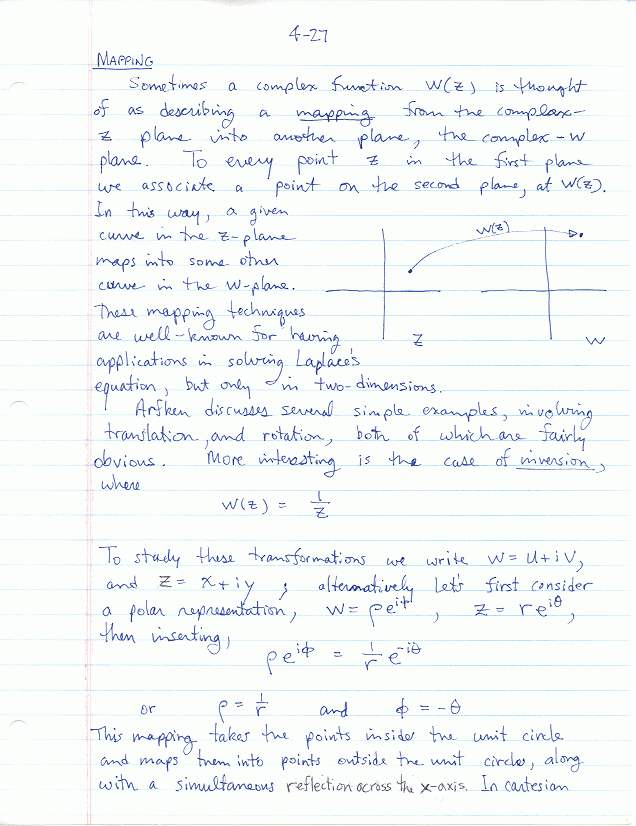 4-27
MAPPING
Sometimes a complex function W(Z) is thought
of as describing a mapping from the complex-
z plane into another plane, the complex-w
plane. To every point z in the first plane
we associate a point on the second plane, at W(Z).
In this way, a given
curve in the z-plane
maps into some other
curve in the w-plane.
These mapping techniques
are well-known for having
applications in solving Laplace's
equation, but only in two-dimensions.
W(Z)
Z
W
Arfken discusses several simple examples, involving
translation, and rotation, both of which are fairly
obvious. More interesting is the case of inversion,
where
W(z) = 1/z
To study these transformations we write W = U + iV,
and Z = x + iy ; alternatively let's first consider
a polar representation, W = ρe^{iφ}, z = re^{iθ},
then inserting,
ρe^{iφ} = 1/r e^{-iθ}
or ρ = 1/r and φ = -θ
This mapping takes the points inside the unit circle
and maps them into points outside the unit circle, along
with a simultaneous reflection across the x-axis. In cartesian